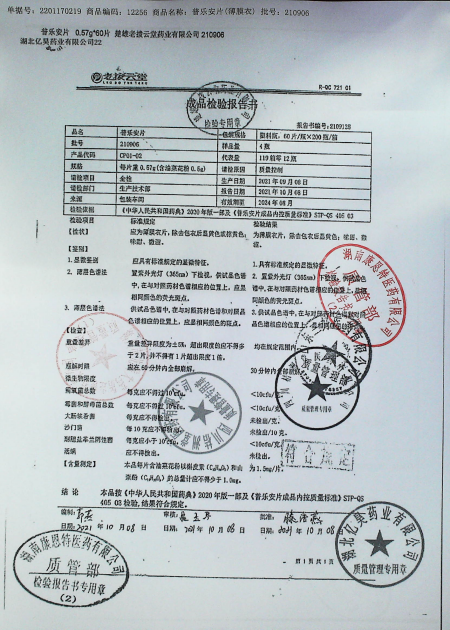 单据号: 2201170219 商品编码: 12256 商品名称: 普乐安片(薄膜衣) 批号: 210906
普乐安片 0.57g*60片 楚雄老拨云堂药业有限公司 210906
湖北亿昊药业有限公司22
老拨云堂
R-QC 721 01
成品检验报告书
检验专用章
报告书编号:2109128
品名 普乐安片 包装规格 塑料瓶, 60片/瓶×200瓶/箱
批号 210906 样品量 4瓶
产品代码 CP01-02 代表量 119箱零12瓶
规格 每片重0.57g(含油菜花粉0.5g) 请检原因 质量控制
请检项目 全检 生产日期 2021年09月08日
请检部门 生产技术部 报告日期 2021年10月08日
来源 包装车间 有效期至 2024年08月
检验依据 《中华人民共和国药典》2020年版一部及《普乐安片成品内控质量标准》STP-QS 405 03
检验项目 标准规定
【性状】 应为薄膜衣片,除去包衣后显黄色或棕黄色; 为薄膜衣片,除去包衣后显黄色;味甜、微
味甜、微涩。 涩。
【鉴别】
1.显微鉴别 应具有标准规定的显微特征。 1.具有标准规定的显微特征。
2.薄层色谱法 置紫外光灯(365nm)下检视,供试品色谱 2.置紫外光灯(365nm)下检视,供试品色谱
中,在与对照药材色谱相应的位置上,应显 中,在与对照药材色谱相应的位置上,显
相同颜色的荧光斑点。 颜色的荧光斑点。
3.薄层色谱法 供试品色谱中,在与对照药材色谱和对照品 3.供试品色谱中,在与对照药材色谱
色谱相应的位置上,应显相同颜色的斑点。 色谱相应的位置上,显相同颜色的
【检查】
重量差异 重量差异限度为±5%,超出限度的应不得多 均在规定范围内
于2片,并不得有1片超出限度1倍。
崩解时限 应在60分钟内全部崩解。 30分钟内
微生物限度
需氧菌总数 每克应不得过 <10cfu/克
霉菌和酵母菌总数 每克应不得过 <10cfu/克
大肠埃希菌 每克应不得检出。 未检出/克
沙门菌 每10克应不得检出 未检出/10克
耐胆盐革兰阴性菌 每克应小于10 <10cfu/克
活螨 应不得检出。 未检出
【含量测定】 本品每片含油菜花粉以槲皮素(C₁₅H₁₀O₇)和山 为1.5mg/片
奈酚(C₁₅H₁₀O₆)的总量计应不得少于1.0mg。
符合规定
结论 本品按《中华人民共和国药典》2020年版一部及《普乐安片成品内控质量标准》STP-QS
405 03检验,结果符合规定。
编制: 审核: 批准:
日期:2021年10月08日 日期:2021年10月08日 日期:2021年10月08日
第1页共1页
湖南康恩特医药有限公司
质管部
湖南康恩特医药有限公司
质管部
检验报告书专用章
(2)
湖北亿昊药业有限公司
质量管理专用章
质量管理专用章